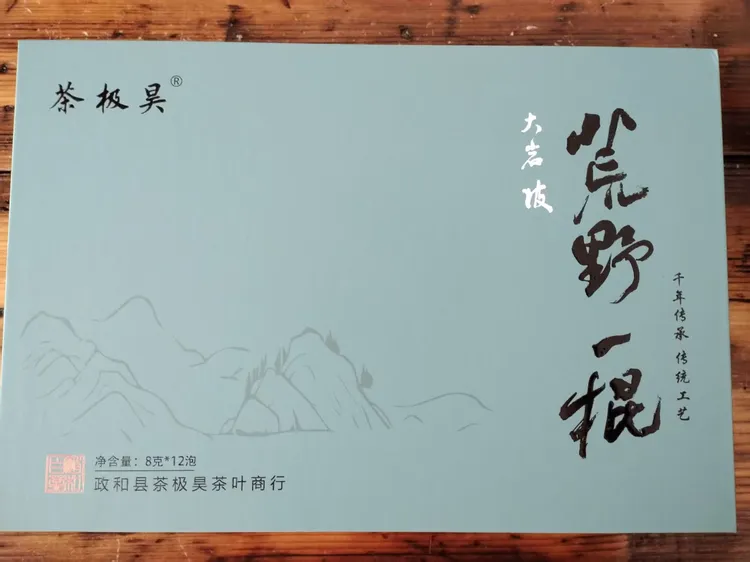 茶极昊®
大岩坡
荒野一棍
千年传承 传统工艺
净含量：8克*12泡
政和县茶极昊茶叶商行